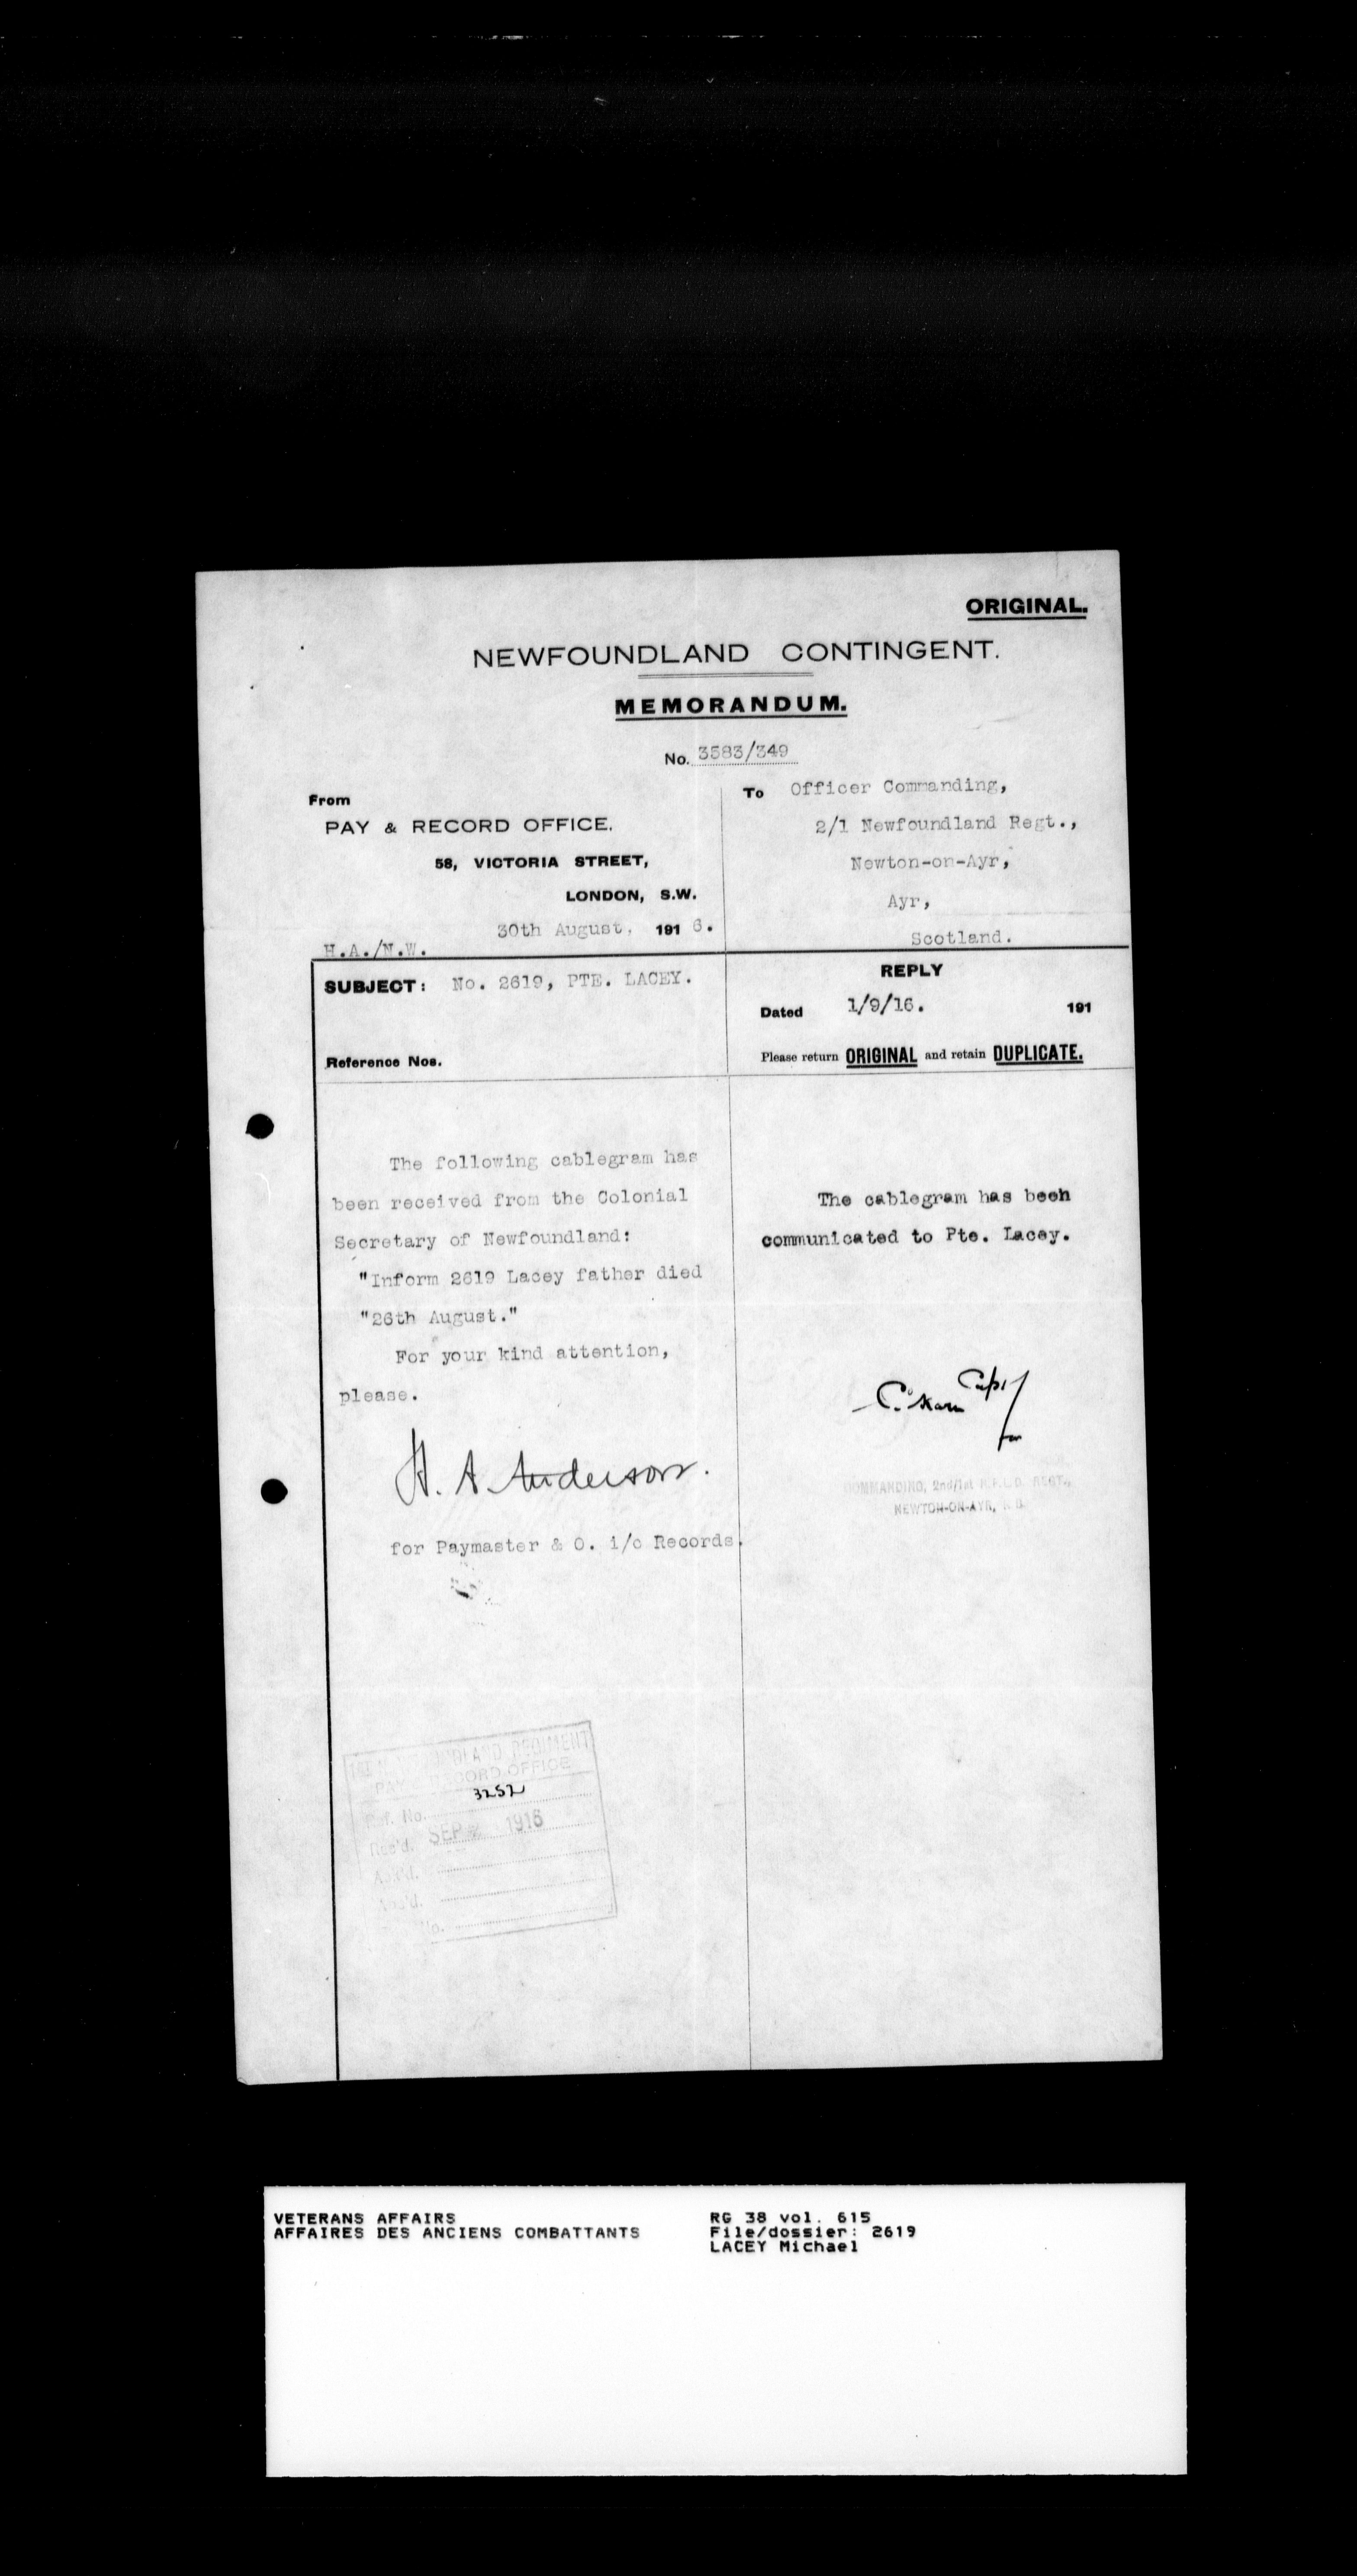 ORIGINAL.
NEWFOUNDLAND CONTINGENT.
MEMORANDUM.
No. 3583/349
From
PAY & RECORD OFFICE.
58, VICTORIA STREET,
LONDON, S.W.
30th August, 1916.
H.A./N.W.
To Officer Commanding,
2/1 Newfoundland Regt.,
Newton-on-Ayr,
Ayr,
Scotland.
SUBJECT: No. 2619, PTE. LACEY.
Reference Nos.
REPLY
Dated 1/9/16. 191
Please return ORIGINAL and retain DUPLICATE.
The following cablegram has
been received from the Colonial
Secretary of Newfoundland:
"Inform 2619 Lacey father died
"26th August."
For your kind attention,
please.
H. A. Anderson.
for Paymaster & O. i/c Records.
The cablegram has been
communicated to Pte. Lacey.
Capt
for
COMMANDING, 2nd/1st N.F.L.D. REGT.,
NEWTON-ON-AYR, N.B.
1ST NEWFOUNDLAND REGIMENT
PAY & RECORD OFFICE
Ref. No. 3252
Rec'd. SEP 2 1916
Ack'd.
Ans'd.
No.
VETERANS AFFAIRS
AFFAIRES DES ANCIENS COMBATTANTS
RG 38 vol. 615
File/dossier: 2619
LACEY Michael